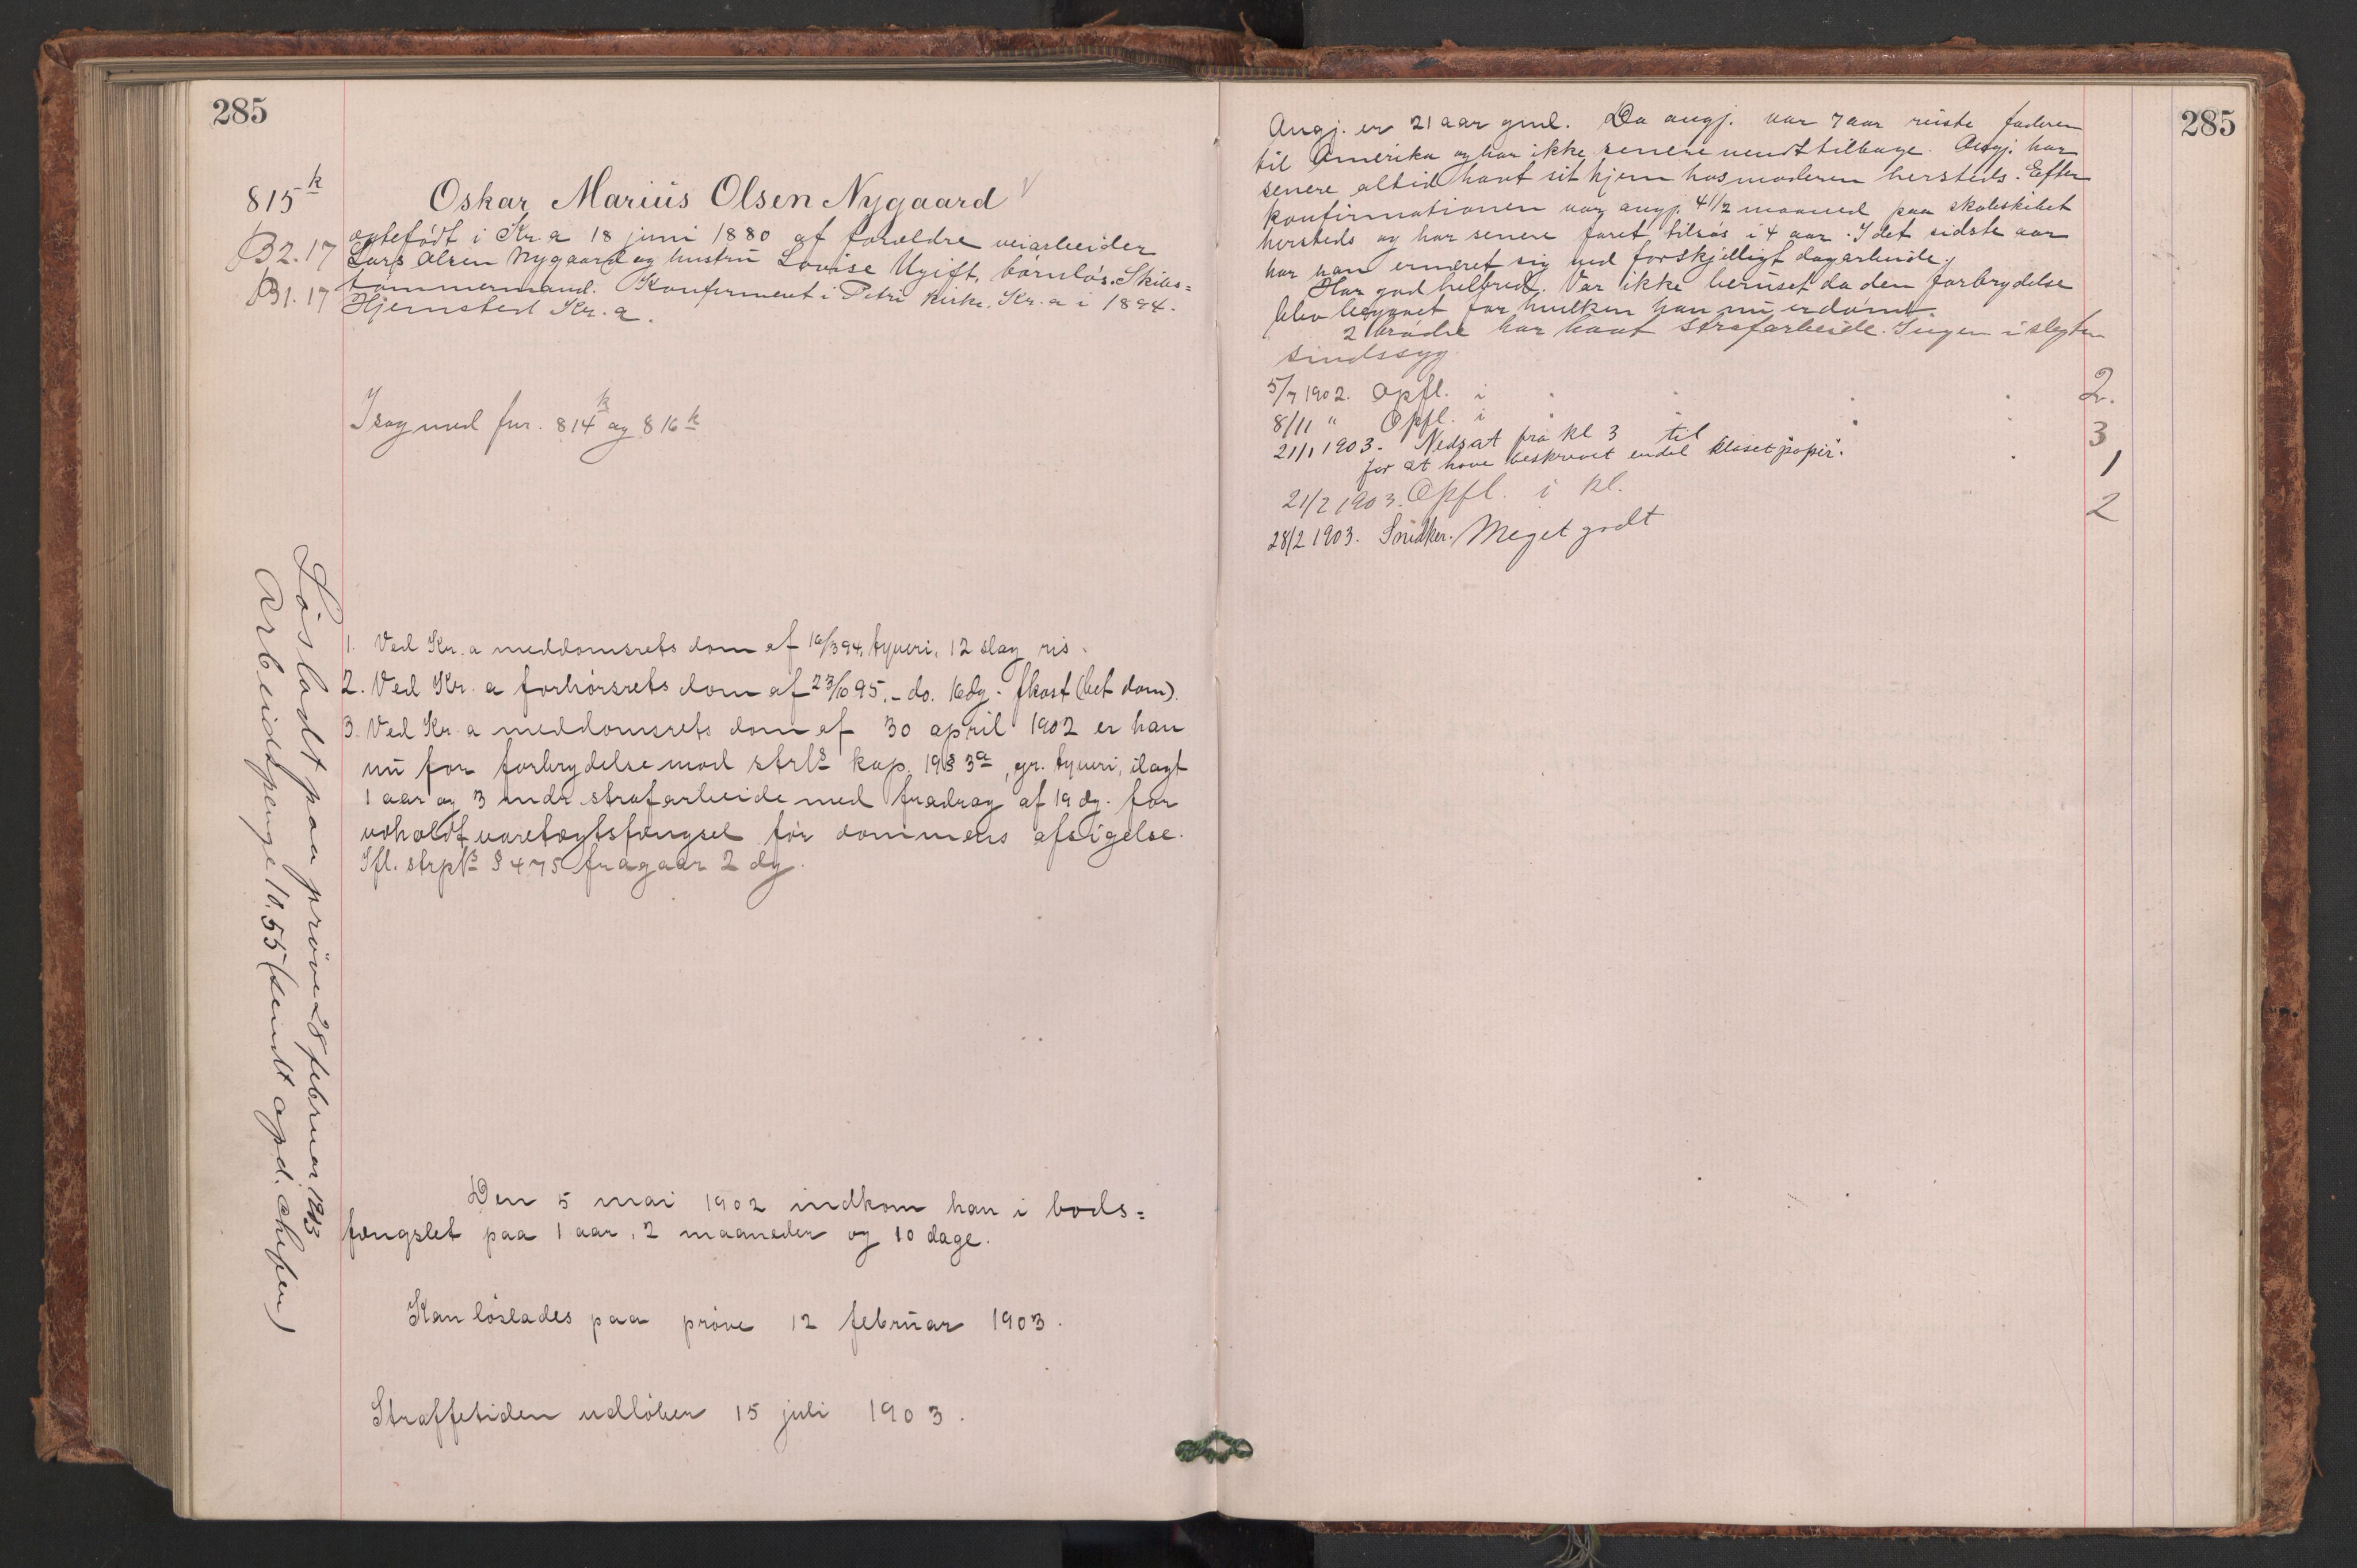 285
815k
Oskar Marius Olsen Nygaard √
B2.17
B1.17
ægtefødt i Kr.a 18 juni 1880 af forældre veiarbeider
Lars Olsen Nygaard og hustru Lovise Ugift, børnløs. Skibs=
tømmermand. Konfirmeret i Petri kirke, Kr.a i 1894.
Hjemsted Kr.a.
I sag med fnr. 814k og 816k
1. Ved Kr.a meddomsrets dom af 10/3 94, tyveri, 12 slag ris.
2. Ved Kr.a forhørsrets dom af 23/10 95, - do. 16 dg. fkost (bet dom).
3. Ved Kr.a meddomsrets dom af 30 april 1902 er han
nu for forbrydelse mod strls kap. 19 § 3a, gr. tyveri, ilagt
1 aar og 3 mdr strafarbeide med fradrag af 19 dg. for
udholdt varetægtsfængsel før dommens afsigelse.
Ifl. strpls § 475 fragaar 2 dg.
Den 5 mai 1902 indkom han i bods=
fængslet paa 1 aar, 2 maaneder og 10 dage.
Kan løslades paa prøve 12 februar 1903.
Straffetiden udløber 15 juli 1903.
Løsladt paa prøve 28 februar 1903
Arbeidspenge 10.55 (sendt opd. chefen)
285
Angj. er 21 aar gml. Da angj. var 7 aar reiste faderen
til Amerika og har ikke senere vendt tilbage. Angj. har
senere altid havt sit hjem hos moderen hersteds. Efter
konfirmationen var angj. 4 1/2 maaned paa skoleskibet
hersteds og har senere faret tilsøs i 4 aar. I det sidste aar
har han ernæret sig ved forskjelligt dagarbeide.
Har god helbred. Var ikke beruset da den forbrydelse
blev begaaet for hvilken han nu er dømt.
2 brødre har havt strafarbeide. Ingen i slegten
sindssyg
5/7 1902. Opfl. i . . . . 2.
8/11 " Opfl. i . . . . 3
21/1 1903. Nedsat fra kl 3 til . 1
for at have beskrevet endel klosetpapir.
21/2 1903. Opfl. i kl. 2
28/2 1903. Snidker. Meget godt